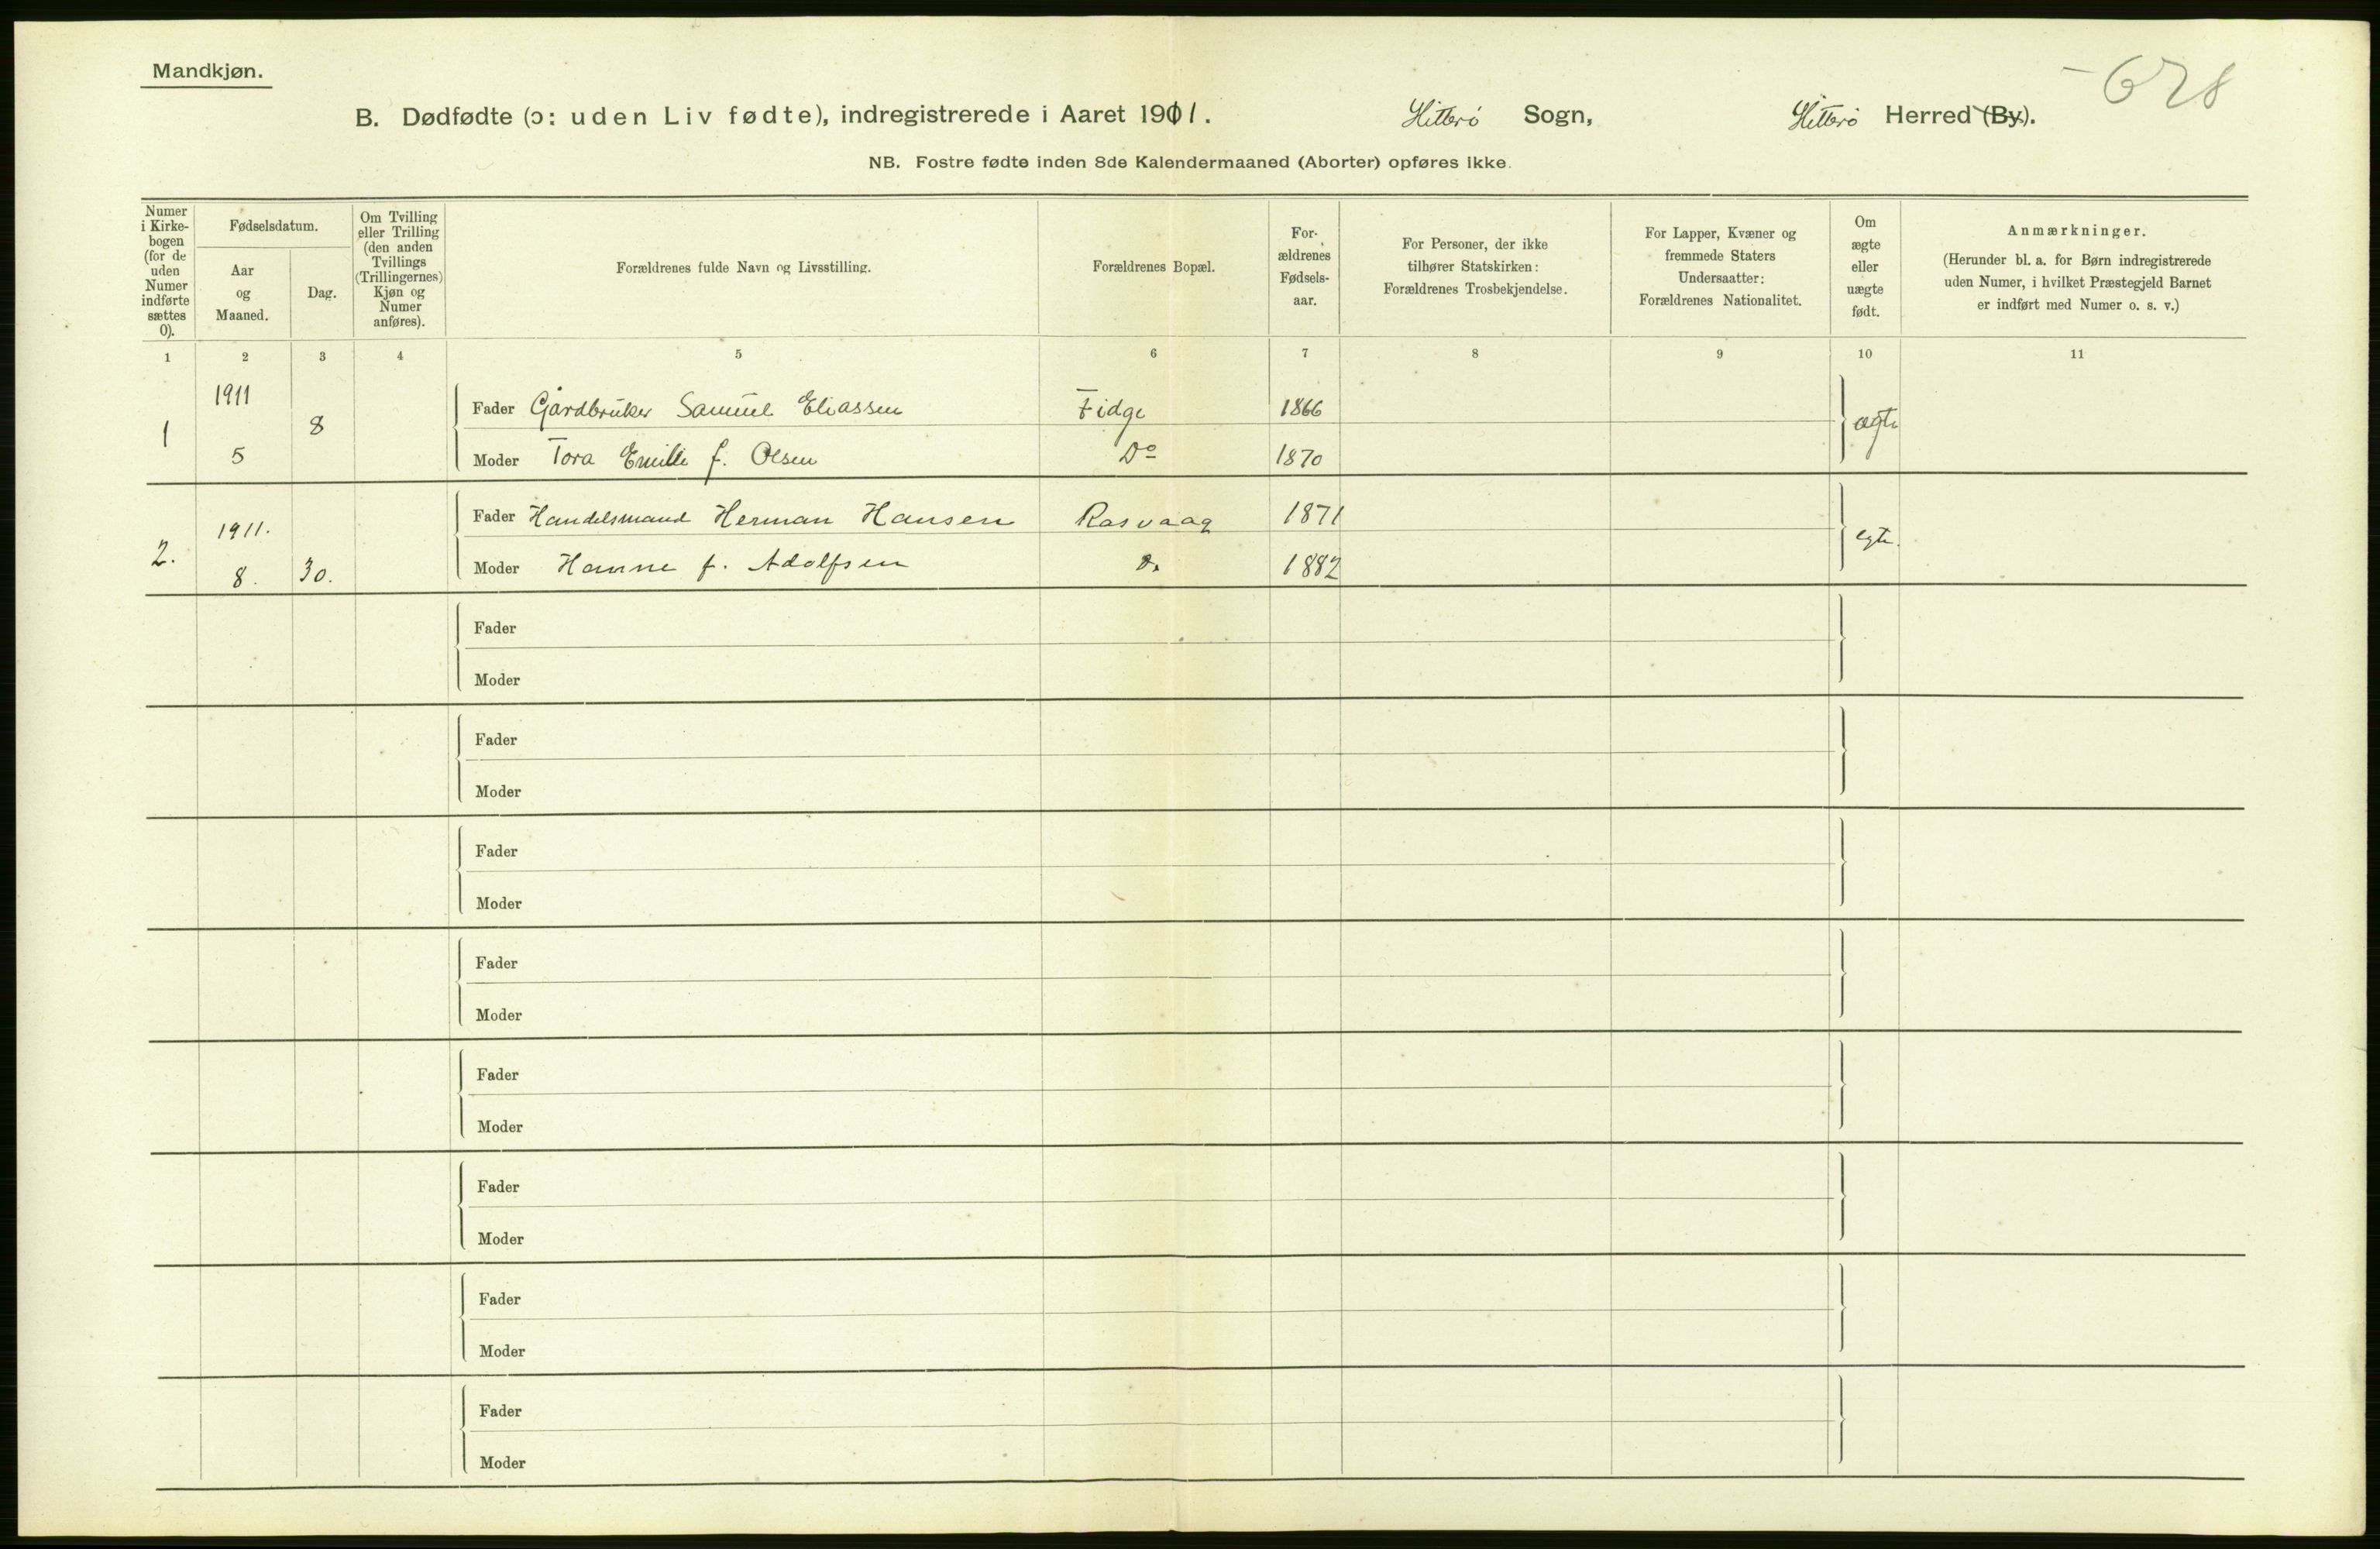 Mandkjøn.
- 628
B. Dødfødte (ɔ: uden Liv fødte), indregistrerede i Aaret 1911. Hitterø Sogn, Hitterø Herred (By).
NB. Fostre fødte inden 8de Kalendermaaned (Aborter) opføres ikke.
Numer
i Kirke-
bogen
(for de
uden
Numer
indførte
sættes
0).
Fødselsdatum.
Aar
og
Maaned.
Dag.
Om Tvilling
eller Trilling
(den anden
Tvillings
(Trillingernes)
Kjøn og
Numer
anføres).
Forældrenes fulde Navn og Livsstilling.
Forældrenes Bopæl.
For-
ældrenes
Fødsels-
aar.
For Personer, der ikke
tilhører Statskirken:
Forældrenes Trosbekjendelse.
For Lapper, Kvæner og
fremmede Staters
Undersaatter:
Forældrenes Nationalitet.
Om
ægte
eller
uægte
født.
Anmærkninger.
(Herunder bl. a. for Børn indregistrerede
uden Numer, i hvilket Præstegjeld Barnet
er indført med Numer o. s. v.)
1 2 3 4 5 6 7 8 9 10 11
1 1911 5 8
Fader Gårdbruker Samuel Eliassen Fidge 1866 ægte
Moder Tora Emilie f. Olsen Do 1870
2. 1911. 8. 30.
Fader Handelsmand Herman Hansen Rasvaag 1871 egte.
Moder Hanne f. Adolfsen Do 1882
Fader
Moder
Fader
Moder
Fader
Moder
Fader
Moder
Fader
Moder
Fader
Moder
Fader
Moder
Fader
Moder